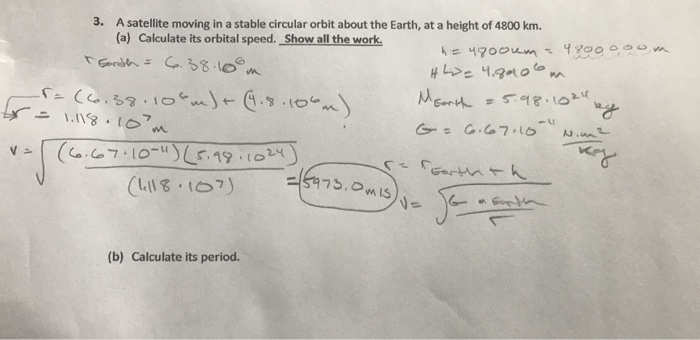 3. A satellite moving in a stable circular orbit about the Earth, at a height of 4800 km.
(a) Calculate its orbital speed. Show all the work.
h = 4800km = 4800000m
r Earth = 6.38·10⁶m
h = 4.8·10⁶m
r = (6.38·10⁶m) + (4.8·10⁶m)
M Earth = 5.98·10²⁴ kg
r = 1.118·10⁷m
G = 6.67·10⁻¹¹ N·m²/kg
v = √((6.67·10⁻¹¹)(5.98·10²⁴)/(1.118·10⁷)) = 5973.0m/s
r = rEarth + h
v = √(G m Earth/r)
(b) Calculate its period.